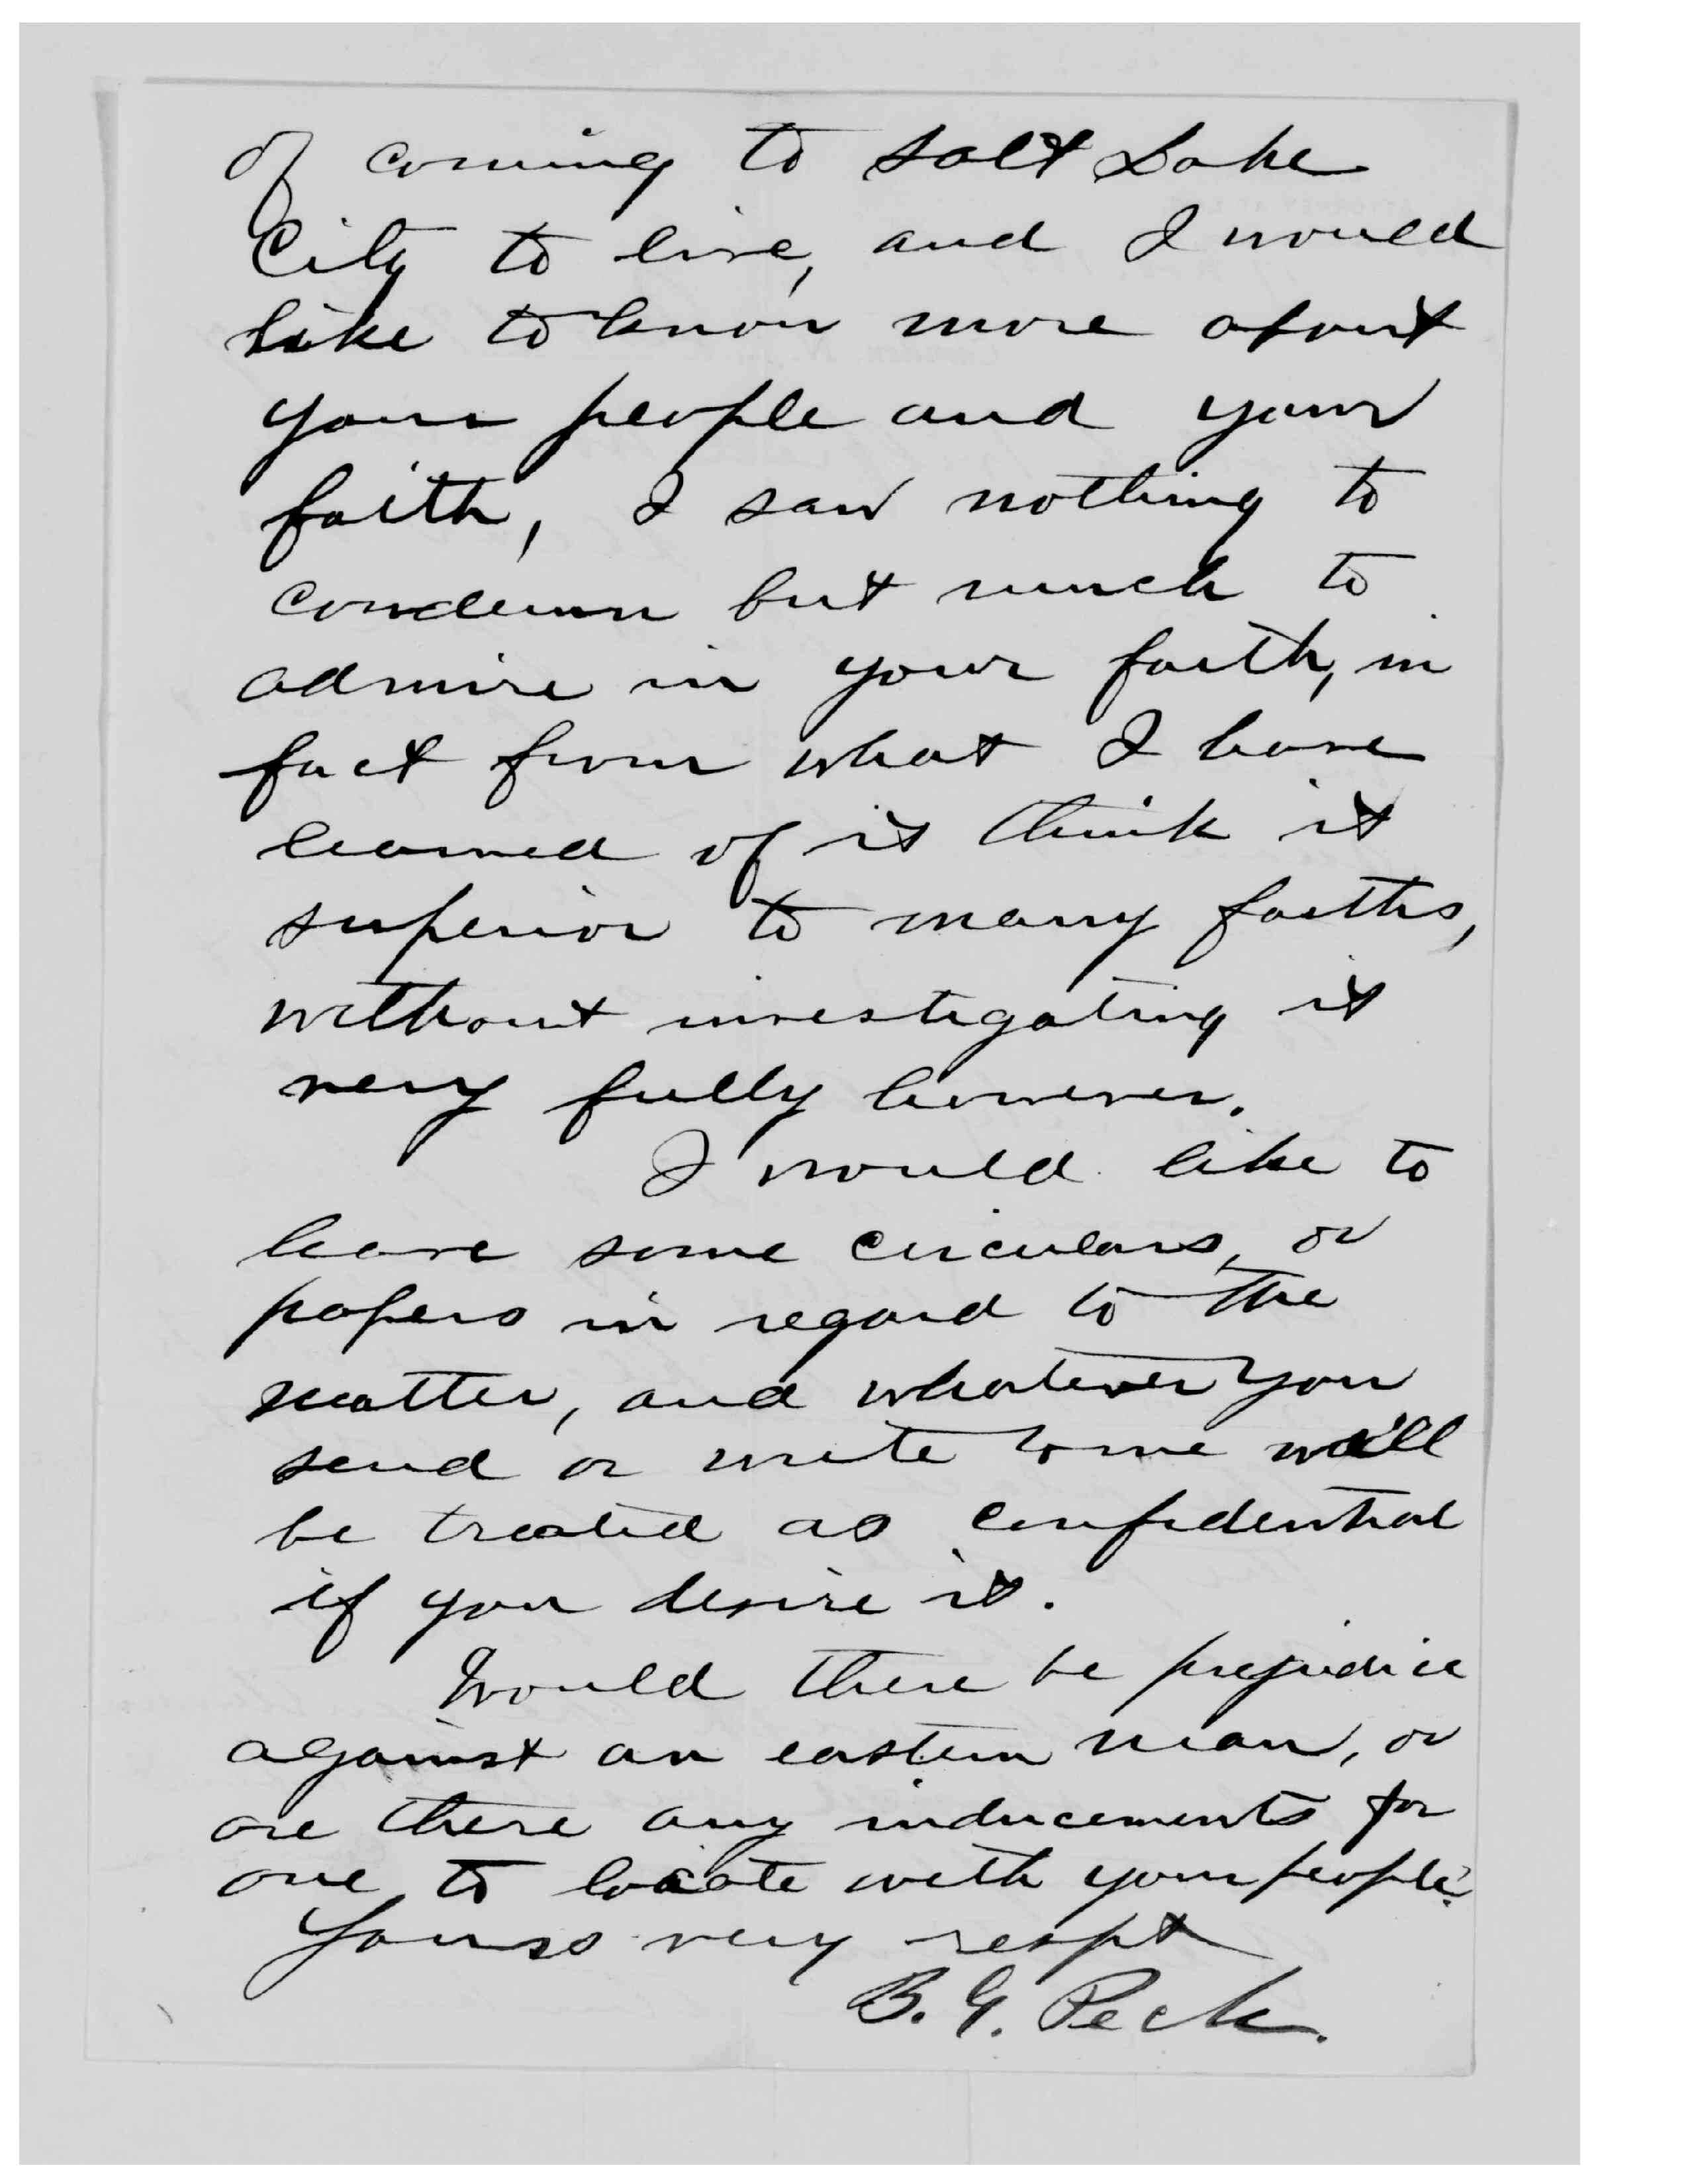 of coming to Salt Lake
City to live, and I would
like to know more about
your people and your
faith, I saw nothing to
condemn but much to
admire in your faith, in
fact from what I have
learned of it think it
superior to many faiths,
without investigating it
very fully however.
I would like to
have some circulars, or
papers in regard to the
matter, and whatever you
send or write to me will
be treated as confidential
if you desire it.
Would there be prejudice
against an eastern man, or
are there any inducements for
one to locate with your people?
Yours very respt
B. G. Peck.